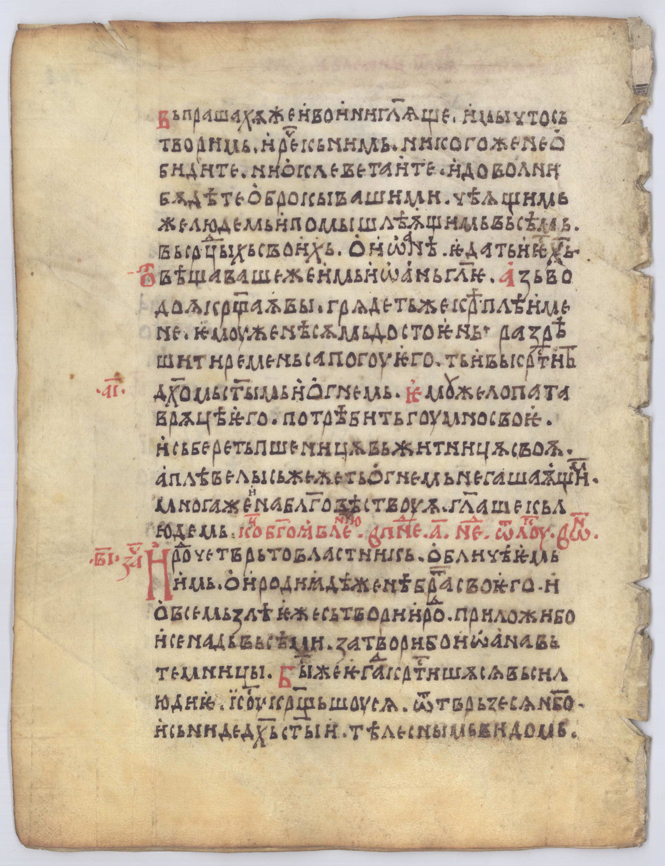 Въпрашахѫ же и вои҆ни гл҃ѧще. и҆ мы что съ
творимь. и҆ рече къ нимь. никого же не о҆
бидите. ни о҆клеветаите. и҆ доволни
бѫдѣте о҆брокы вашими. чѣѫщимь
же людемь и҆ помышлѣѫщимь вьсѣмь.
вь срⷣцыхь своихь. о҆ и҆ѡ҆нѣ. ѥ҆да тъ ѥ҆ х҃ь
ѿвѣщаваше же и҆мь и҆ѡ҆ань гл҃ѥ. А҆зь во
доѫ крⷭщаѫ вы. грѧдеть же крѣплѣи мене
не. ѥ҆моу же нѣсѧмь достои҆нь. разрѣ
шити ремень сапогоу ѥ҆го. тъ и҆ вы крⷭтить
·а҃і· дх҃омь ст҃ымь и҆ о҆гнемь. ѥ҆моу же лопата
в рѫцѣ ѥ҆го. потрѣбить гоумно своѥ.
и҆ съберетъ пшеницѫ вь житницѫ своѫ.
а плѣвелы съжежеть о҆гнемь негашаѫщиⷨ.
многа же и наблг҃овѣствоуѫ. гл҃аше къ
людемь. кⷪ҇ б҃гоꙗвлению. в пнⷣе. а҃. нⷣе. ѿ лоу. ѳѡⷩ҇.
·в҃і· заⷱ҇ И҆рⷪ҇ четврьтовластникь. о҆бличѣѥ҆мь
имь. о҆ и҆родиꙗдѣ женѣ братⷭа своѥ҆го. и
о҆ всемь ѕлѣ ѥ҆же сътвори и҆рⷪ҇. приложи бо
и҆ се надъ вьсѣми. затвори бо и҆ѡ҆ана вь
темници. Бы же ѥ҆гⷣа крⷭтишѧсѧ вьси
людиѥ. і҆с҃оу крⷭщьшоусѧ. ѿтврьзе сѧ нб҃о.
и҆ съниде дх҃ь ст҃ыи. тѣлесным видомь.